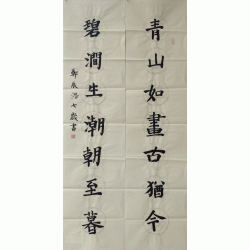 青山如畫古猶今
碧澗生潮朝至暮